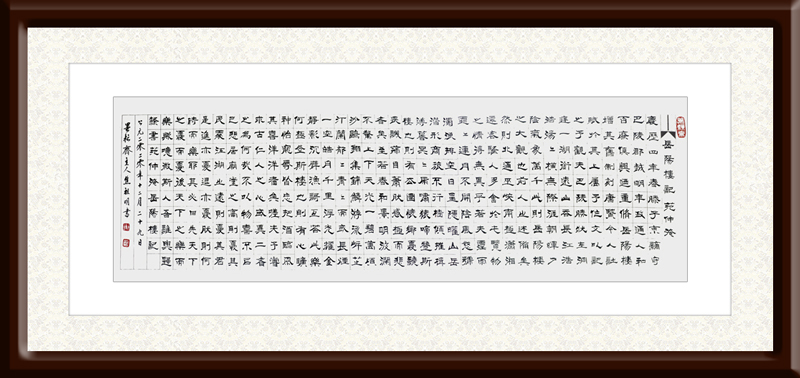 岳陽樓記 范仲淹
慶歷四年春滕子京謫守
巴陵郡越明年政通人和
百廢俱興乃重修岳陽樓
增其舊制刻唐賢今人詩
賦於其上屬予作文以記
之予觀夫巴陵勝狀在洞
庭一湖銜遠山吞長江浩
浩湯湯橫無際涯朝暉夕
陰氣象萬千此則岳陽樓
之大觀也前人之述備矣
然則北通巫峽南極瀟湘
遷客騷人多會於此覽物
之情得無異乎若夫霪雨
霏霏連月不開陰風怒號
濁浪排空日星隱曜山岳
潛形商旅不行檣傾楫摧
薄暮冥冥虎嘯猿啼登斯
樓也則有去國懷鄉憂讒
畏譏滿目蕭然感極而悲
者矣至若春和景明波瀾
不驚上下天光一碧萬頃
沙鷗翔集錦鱗游泳岸芷
汀蘭郁郁青青而或長煙
一空皓月千里浮光躍金
靜影沉璧漁歌互答此樂
何極登斯樓也則有心曠
神怡寵辱皆忘把酒臨風
其喜洋洋者矣嗟夫予嘗
求古仁人之心或異二者
之為何哉不以物喜不以
己悲居廟堂之高則憂其
民處江湖之遠則憂其君
是進亦憂退亦憂然則何
時而樂耶其必曰先天下
之憂而憂後天下之樂而
樂歟噫微斯人吾誰與歸
范仲淹岳陽樓記
公元二零零零年十二月二十九日
齋主人 祖明書